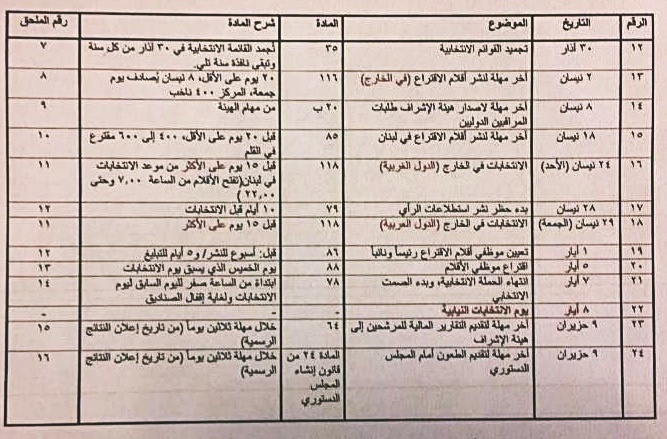 الرقم التاريخ الموضوع المادة شرح المادة رقم الملحق
١٢ ٣٠ آذار تجميد القوائم الانتخابية ٣٥ تُجمد القائمة الانتخابية في ٣٠ آذار من كل سنة ٧
وتبقى نافذة سنة تلي.
١٣ ٢ نيسان آخر مهلة لنشر أقلام الاقتراع (في الخارج) ١١٦ ٢٠ يوم على الأقل، ٨ نيسان يُصادف يوم ٨
جمعة، المركز ٤٠٠ ناخب
١٤ ٨ نيسان آخر مهلة لاصدار هيئة الإشراف طلبات ٢٠ ب من مهام الهيئة ٩
المراقبين الدوليين
١٥ ١٨ نيسان آخر مهلة لنشر أقلام الاقتراع في لبنان ٨٥ قبل ٢٠ يوم على الأقل، ٤٠٠ إلى ٦٠٠ مقترع ١٠
في القلم
١٦ ٢٤ نيسان (الأحد) الانتخابات في الخارج (الدول الغربية) ١١٨ قبل ١٥ يوم على الأكثر من موعد الانتخابات ١١
في لبنان(تفتح الأقلام من الساعة ٧,٠٠ وحتى
٢٢,٠٠)
١٧ ٢٨ نيسان بدء حظر نشر استطلاعات الرأي ٧٩ ١٠ أيام قبل الانتخابات ١٢
١٨ ٢٩ نيسان (الجمعة) الانتخابات في الخارج (الدول العربية) ١١٨ قبل ١٥ يوم على الأكثر ١١
١٩ ١ أيار تعيين موظفي أقلام الاقتراع رئيساً ونائباً ٨٦ قبل: أسبوع للنشر/ و٥ أيام للتبليغ ١٢
٢٠ ٥ أيار اقتراع موظفي الأقلام ٨٨ يوم الخميس الذي يسبق يوم الانتخابات ١٣
٢١ ٧ أيار انتهاء الحملة الانتخابية، وبدء الصمت ٧٨ ابتداءً من الساعة صفر لليوم السابق ليوم ١٤
الانتخابي الانتخابات ولغاية إقفال الصناديق
٢٢ ٨ أيار يوم الانتخابات النيابية - - -
٢٣ ٩ حزيران آخر مهلة لتقديم التقارير المالية للمرشحين إلى ٦٤ خلال مهلة ثلاثين يوماً (من تاريخ إعلان النتائج ١٥
هيئة الإشراف الرسمية)
٢٤ ٩ حزيران آخر مهلة لتقديم الطعون أمام المجلس المادة ٢٤ من خلال مهلة ثلاثين يوماً (من تاريخ إعلان النتائج ١٦
الدستوري قانون إنشاء الرسمية)
المجلس
الدستوري